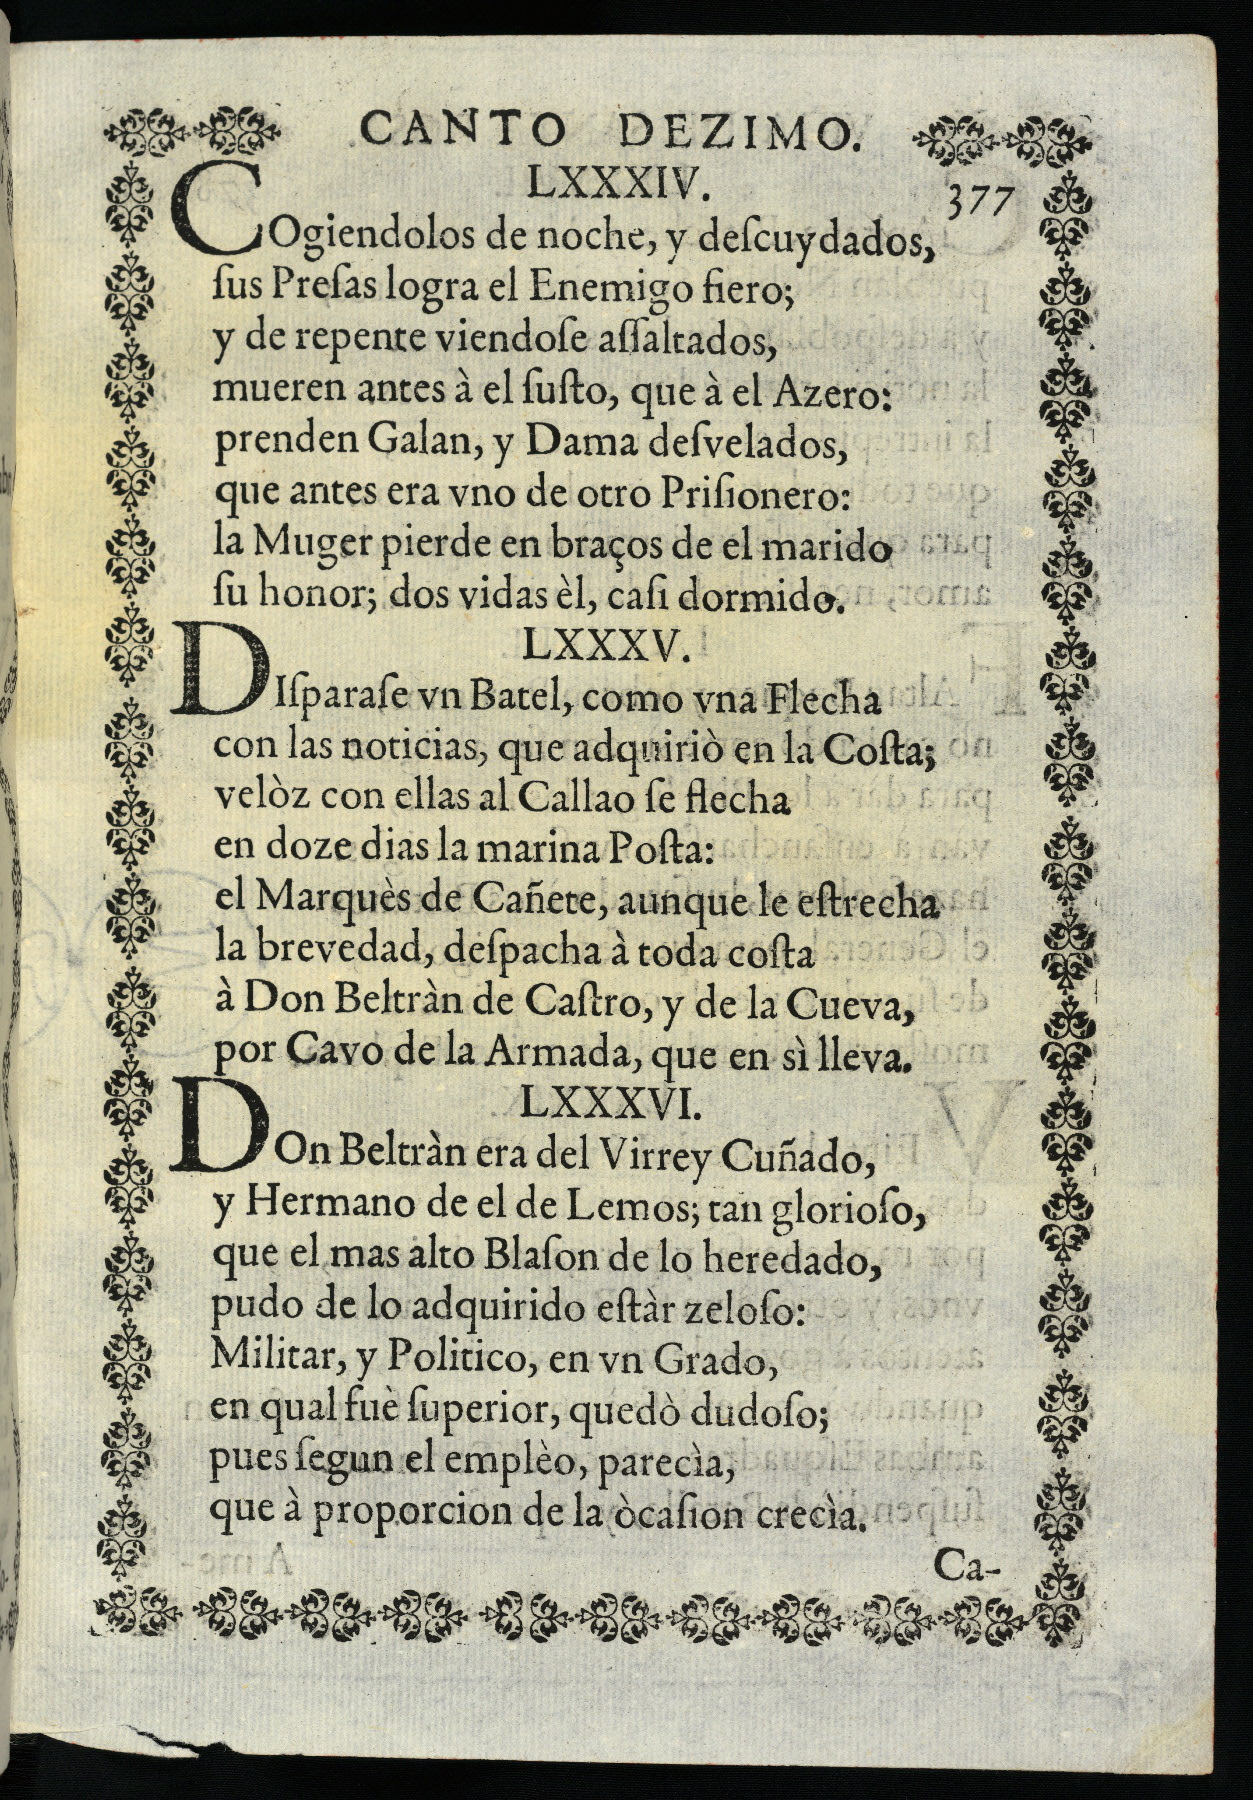 CANTO DEZIMO.
LXXXIV.
377
COgiendolos de noche, y deſcuydados,
ſus Preſas logra el Enemigo fiero;
y de repente viendoſe aſſaltados,
mueren antes à el ſuſto, que à el Azero:
prenden Galan, y Dama deſvelados,
que antes era vno de otro Priſionero:
la Muger pierde en braços de el marido
ſu honor; dos vidas èl, caſi dormido.
LXXXV.
DIſparaſe vn Batel, como vna Flecha
con las noticias, que adquiriò en la Coſta;
velòz con ellas al Callao ſe flecha
en doze dias la marina Poſta:
el Marquès de Cañete, aunque le eſtrecha
la brevedad, deſpacha à toda coſta
à Don Beltràn de Caſtro, y de la Cueva,
por Cavo de la Armada, que en sì lleva.
LXXXVI.
DOn Beltràn era del Virrey Cuñado,
y Hermano de el de Lemos; tan glorioſo,
que el mas alto Blaſon de lo heredado,
pudo de lo adquirido eſtàr zeloſo:
Militar, y Politico, en vn Grado,
en qual fuè ſuperior, quedò dudoſo;
pues ſegun el emplèo, parecìa,
que à proporcion de la òcaſion crecìa.
Ca-